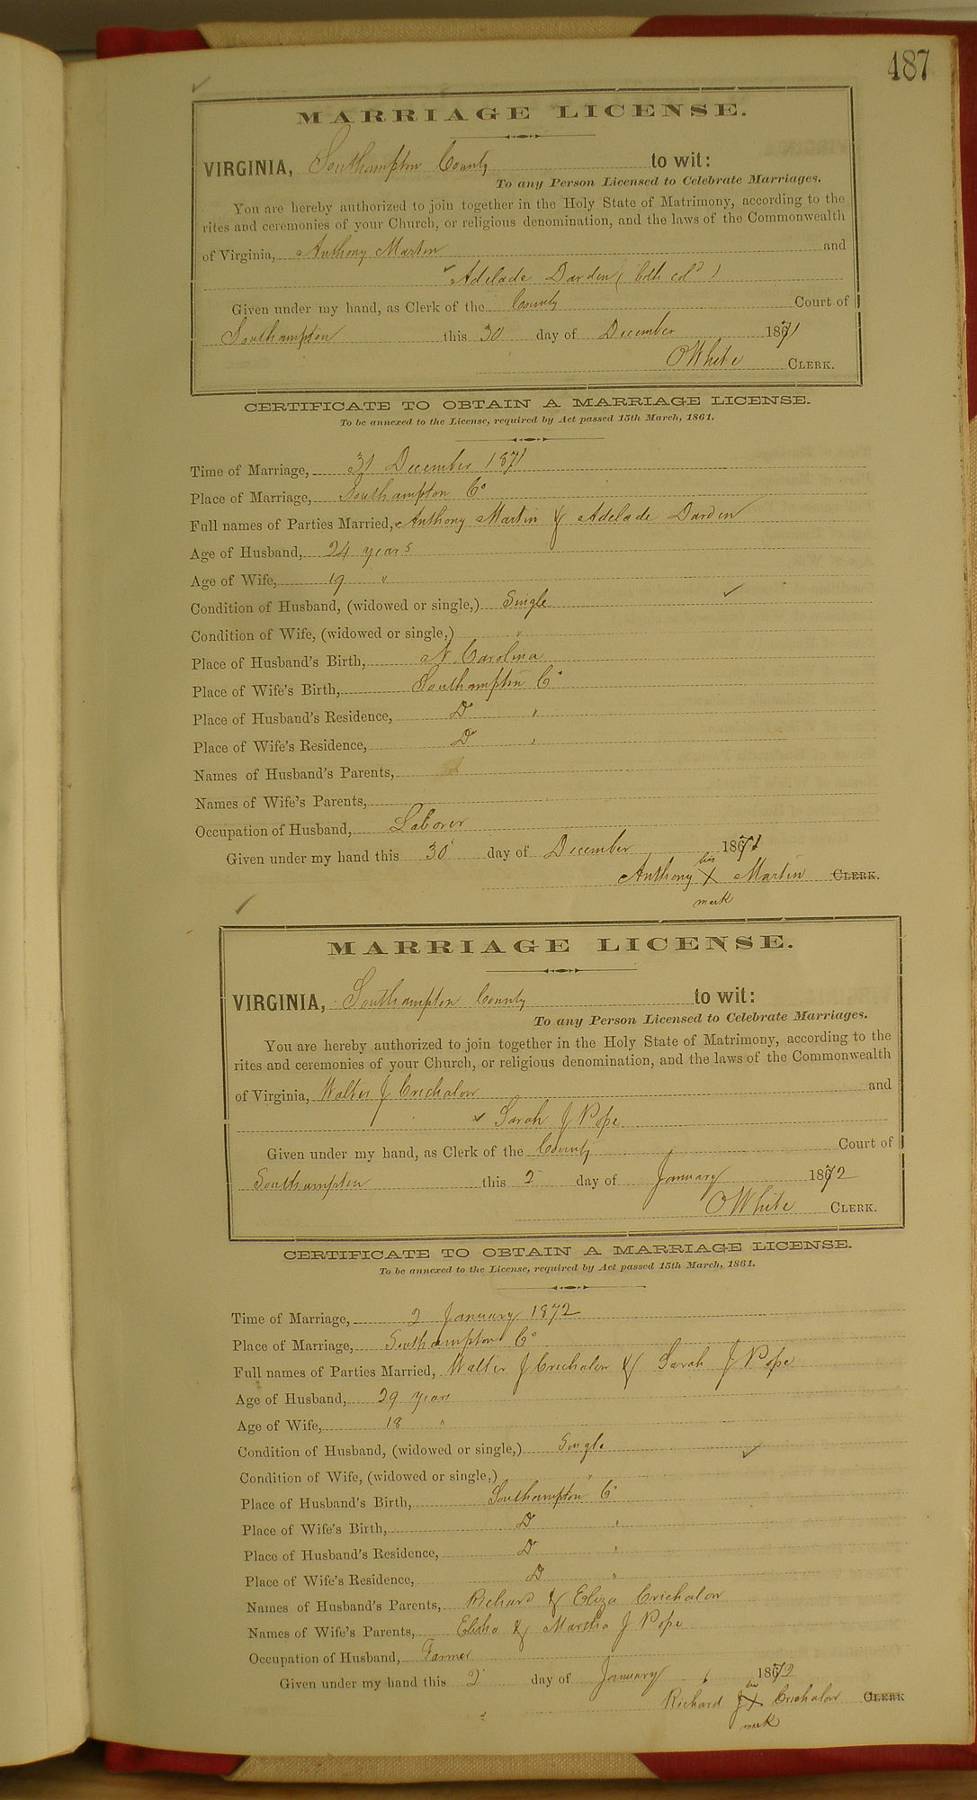 487
MARRIAGE LICENSE.
VIRGINIA, Southampton County to wit:
To any Person Licensed to Celebrate Marriages.
You are hereby authorized to join together in the Holy State of Matrimony, according to the
rites and ceremonies of your Church, or religious denomination, and the laws of the Commonwealth
of Virginia, Anthony Martin and
Adelade Darden (both cold)
Given under my hand, as Clerk of the County Court of
Southampton this 30 day of December 1871
O White CLERK.
CERTIFICATE TO OBTAIN A MARRIAGE LICENSE.
To be annexed to the License, required by Act passed 15th March, 1861.
Time of Marriage, 31 December 1871
Place of Marriage, Southampton Co
Full names of Parties Married, Anthony Martin & Adelade Darden
Age of Husband, 24 years
Age of Wife, 19 "
Condition of Husband, (widowed or single,) Single
Condition of Wife, (widowed or single,) "
Place of Husband's Birth, N. Carolina
Place of Wife's Birth, Southampton Co
Place of Husband's Residence, Do "
Place of Wife's Residence, Do "
Names of Husband's Parents,
Names of Wife's Parents,
Occupation of Husband, Laborer
Given under my hand this 30 day of December 1871
his
Anthony X Martin CLERK.
mark
MARRIAGE LICENSE.
VIRGINIA, Southampton County to wit:
To any Person Licensed to Celebrate Marriages.
You are hereby authorized to join together in the Holy State of Matrimony, according to the
rites and ceremonies of your Church, or religious denomination, and the laws of the Commonwealth
of Virginia, Walter J Crichalow and
Sarah J Pope
Given under my hand, as Clerk of the County Court of
Southampton this 2 day of January 1872
O White CLERK.
CERTIFICATE TO OBTAIN A MARRIAGE LICENSE.
To be annexed to the License, required by Act passed 15th March, 1861.
Time of Marriage, 2 January 1872
Place of Marriage, Southampton Co
Full names of Parties Married, Walter J Crichalow & Sarah J Pope
Age of Husband, 29 years
Age of Wife, 18 "
Condition of Husband, (widowed or single,) Single
Condition of Wife, (widowed or single,) "
Place of Husband's Birth, Southampton Co
Place of Wife's Birth, Do "
Place of Husband's Residence, Do "
Place of Wife's Residence, Do "
Names of Husband's Parents, Richard & Eliza Crichalow
Names of Wife's Parents, Elisha & Martha J Pope
Occupation of Husband, Farmer
Given under my hand this 2 day of January 1872
his
Richard X Crichalow CLERK
mark